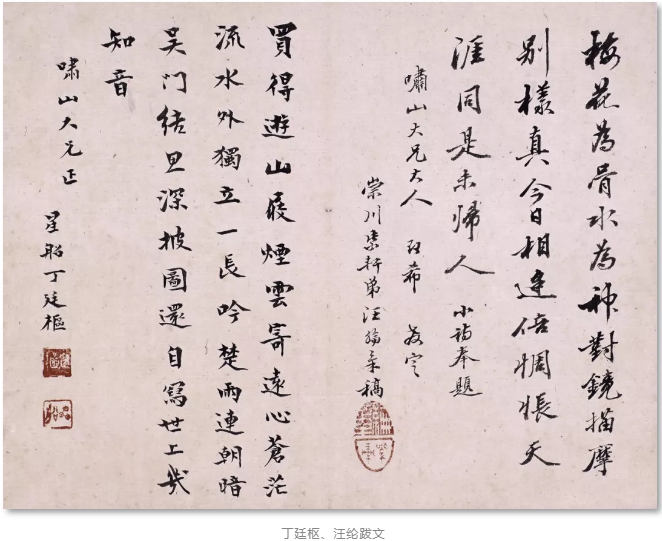 梅花為骨水為神對鏡描摩
別樣真今日相逢倍惆悵天
涯同是未歸人 小詩奉題
嘯山大兄大人 希 教定
崇川紫軒弟汪綸稿
買得遊山屐煙雲寄遠心蒼茫
流水外獨立一長吟楚雨連朝暗
吴门結深披圖還自寫世上幾
知音
嘯山大兄正
星船丁廷樞
丁廷枢、汪纶跋文